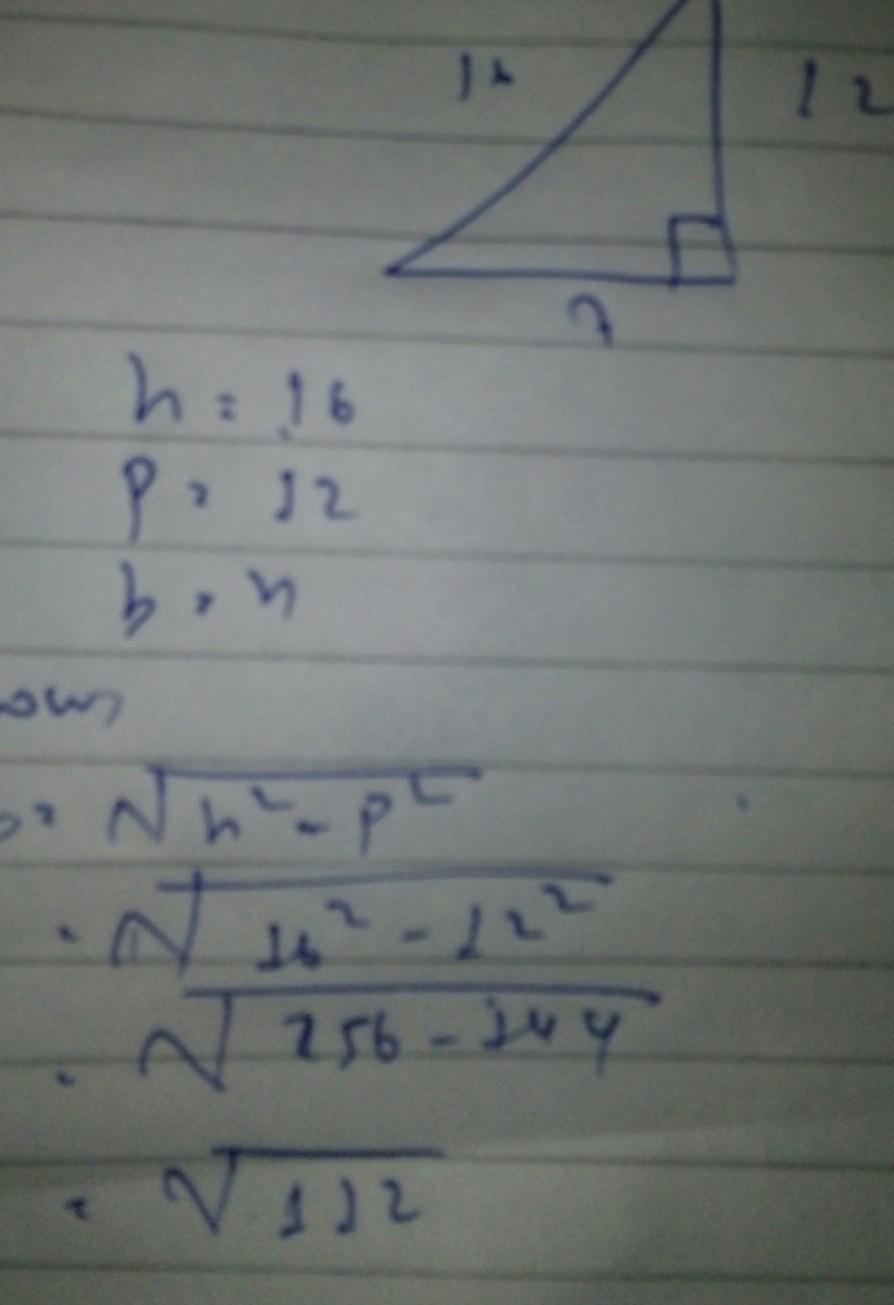 16 12
?
h = 16
p = 12
b = x
b = √h² - p²
= √16² - 12²
= √256 - 144
= √112